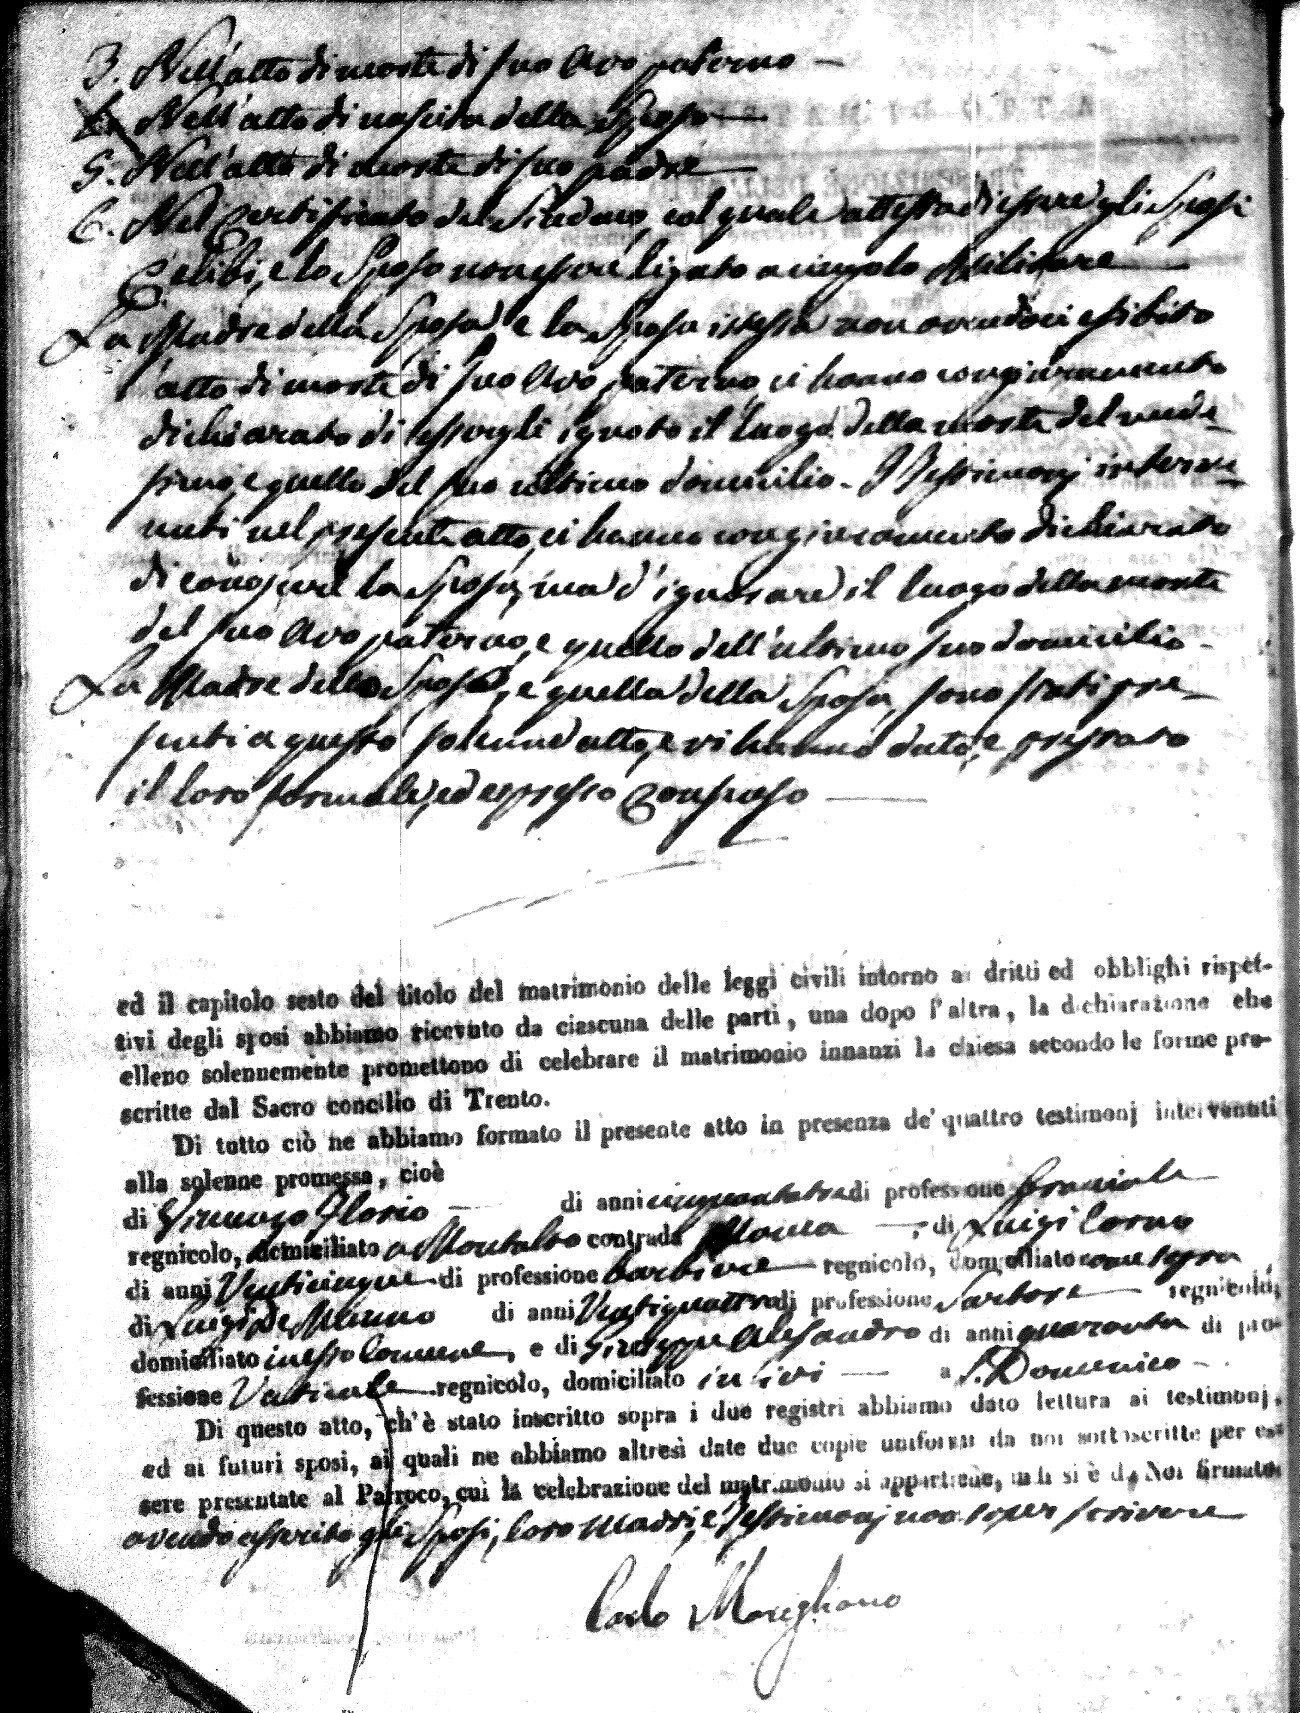 3. Nell'atto di morte di suo Avo paterno —
4. Nell'atto di nascita della Sposa —
5. Nell'atto di morte di suo padre —
6. Nel Certificato del Sindaco, col quale attesta di essere gli Sposi
Celibi, e lo Sposo non essere ligato a cingolo Militare —
La Madre della Sposa, e la Sposa istessa non avendoci esibito
atto di morte di suo Avo paterno, ci hanno con giuramento
dichiarato di essergli ignoto il luogo della morte del mede-
simo, e quello del suo ultimo domicilio. I Testimonj interve-
nuti nel presente atto, ci hanno con giuramento dichiarato
di conoscere la Sposa, ma d'ignorare il luogo della morte
del suo Avo paterno, e quello dell'ultimo suo domicilio.
La Madre dello Sposo, e quella della Sposa, sono stati pre-
senti a questo solenne atto, e vi hanno dato, e prestato
il loro formale, ed espresso Consenso —
ed il capitolo sesto del titolo del matrimonio delle leggi civili intorno ai dritti ed obblighi rispet-
tivi degli sposi abbiamo ricevuto da ciascuna delle parti, una dopo l'altra, la dichiarazione che
elleno solennemente promettono di celebrare il matrimonio innanzi la chiesa secondo le forme pre-
scritte dal Sacro concilio di Trento.
Di tutto ciò ne abbiamo formato il presente atto in presenza de' quattro testimonj intervenuti
alla solenne promessa, cioè
di Vincenzo Florio — di anni cinquantatre di professione
regnicolo, domiciliato a Montalto contrada — ; di Luigi Corno
di anni Venticinque di professione barbiere — regnicolo, domiciliato come sopra
di Luigi De Munno di anni Ventiquattro di professione Sartore — regnicolo,
domiciliato in esso Comune, e di Giuseppe Alesandro di anni quaranta di pro-
fessione Vaticale — regnicolo, domiciliato in ivi — a S. Domenico —
Di questo atto, ch'è stato inscritto sopra i due registri abbiamo dato lettura ai testimonj,
ed ai futuri sposi, ai quali ne abbiamo altresì date due copie uniformi da noi sottoscritte per es-
sere presentate al Parroco, cui la celebrazione del matrimonio si appartiene, indi si è da Noi firmato
avendo asserito gli Sposi, loro Madri, e Testimonj non saper scrivere
Carlo Marigliano